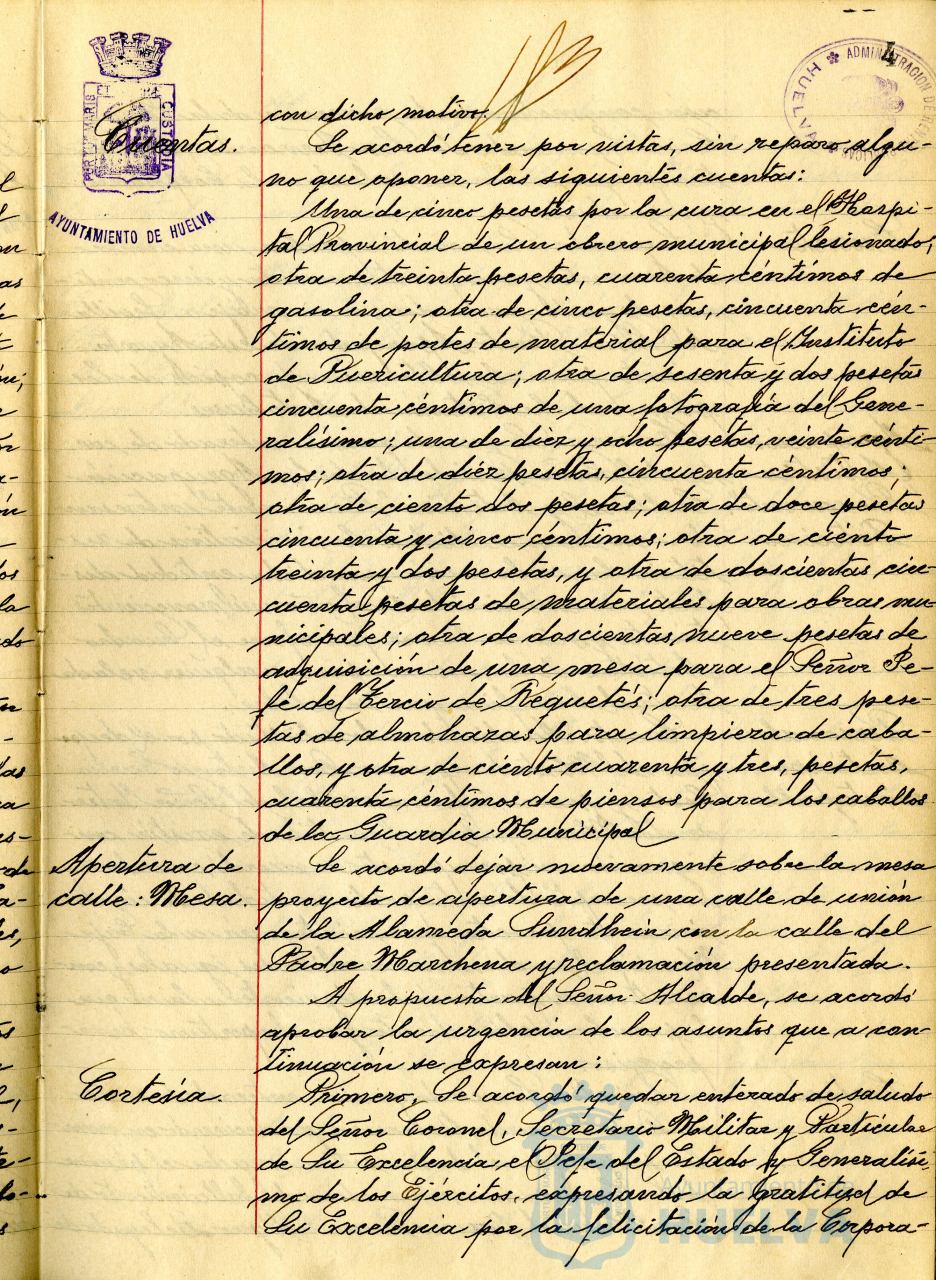 4
ADMINISTRACION DE
HUELVA
PORTUS MARIS ET TERRAE CUSTODIA
AYUNTAMIENTO DE HUELVA
con dicho motivo.
Cuentas.
Se acordó tener por vistas, sin reparo algu-
no que oponer, las siguientes cuentas:
Una de cinco pesetas por la cura en el Hospi-
tal Provincial de un obrero municipal lesionado;
otra de treinta pesetas, cuarenta céntimos de
gasolina; otra de cinco pesetas, cincuenta cén-
timos de portes de material para el Instituto
de Puericultura; otra de sesenta y dos pesetas
cincuenta céntimos de una fotografía del Gene-
ralísimo; una de diez y ocho pesetas, veinte cénti-
mos; otra de diez pesetas, cincuenta céntimos;
otra de ciento dos pesetas; otra de doce pesetas
cincuenta y cinco céntimos; otra de ciento
treinta y dos pesetas, y otra de doscientas cin-
cuenta pesetas de materiales para obras mu-
nicipales; otra de doscientas nueve pesetas de
adquisición de una mesa para el Señor Je-
fe del Tercio de Requetés; otra de tres pese-
tas de almohazas para limpieza de caba-
llos, y otra de ciento cuarenta y tres, pesetas,
cuarenta céntimos de piensos para los caballos
de la Guardia Municipal
Apertura de
calle: Mesa.
Se acordó dejar nuevamente sobre la mesa
proyecto de apertura de una calle de unión
de la Alameda Sundhein con la calle del
Padre Marchena y reclamación presentada.
A propuesta del Señor Alcalde, se acordó
aprobar la urgencia de los asuntos que a con-
tinuación se expresan:
Cortesía.
Primero, Se acordó quedar enterado de saludo
del Señor Coronel, Secretario Militar y Particular
de Su Excelencia el Jefe del Estado y Generalísi-
mo de los Ejércitos, expresando la gratitud de
Su Excelencia por la felicitación de la Corpora-
Ayuntamiento de
HUELVA